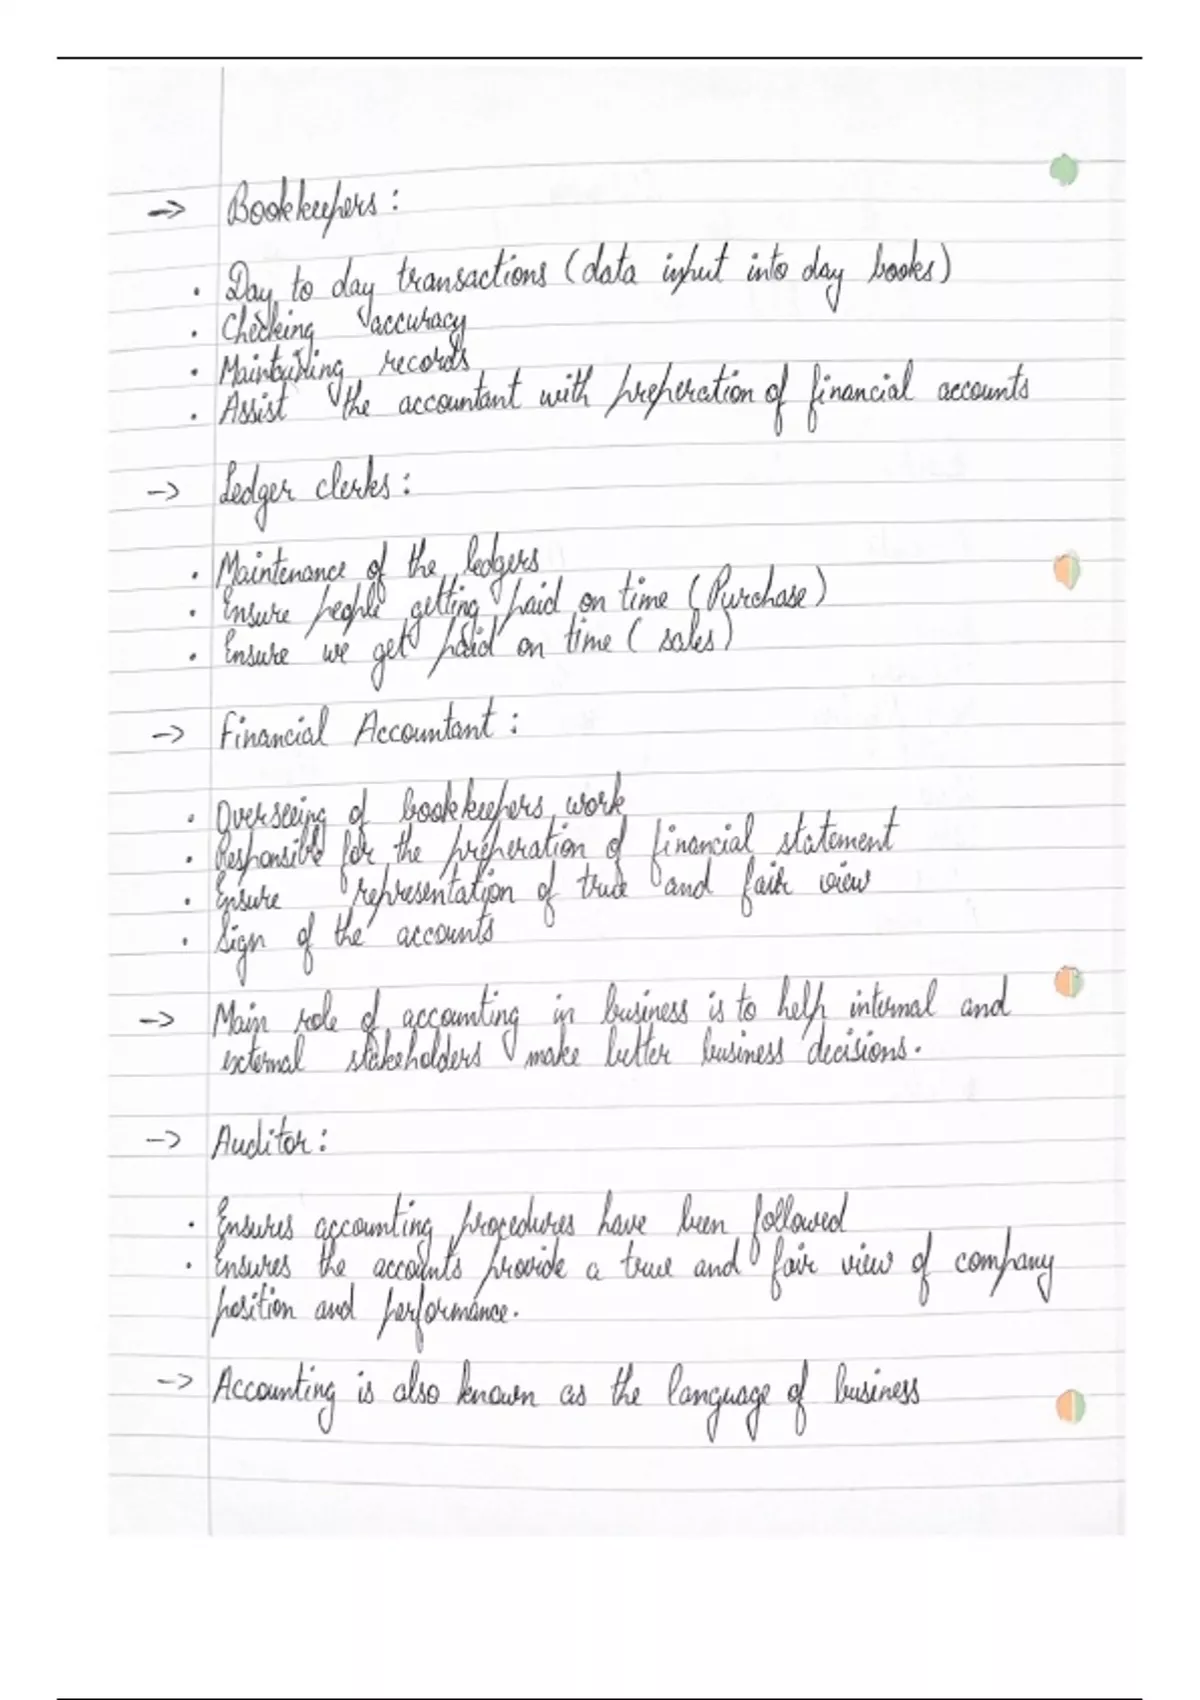 → Bookkeepers:
· Day to day transactions (data input into day books)
· Checking accuracy
· Maintaining records
· Assist the accountant with preperation of financial accounts
→ Ledger clerks:
· Maintenance of the ledgers
· Ensure people getting paid on time (Purchase)
· Ensure we get paid on time (sales)
→ Financial Accountant:
· Overseeing of bookkeepers work
· Responsible for the preperation of financial statement
· Ensure representation of true and fair view
· Sign of the accounts
→ Main role of accounting in business is to help internal and
external stakeholders make better business decisions.
→ Auditor:
· Ensures accounting procedures have been followed
· Ensures the accounts provide a true and fair view of company
position and performance.
→ Accounting is also known as the language of business